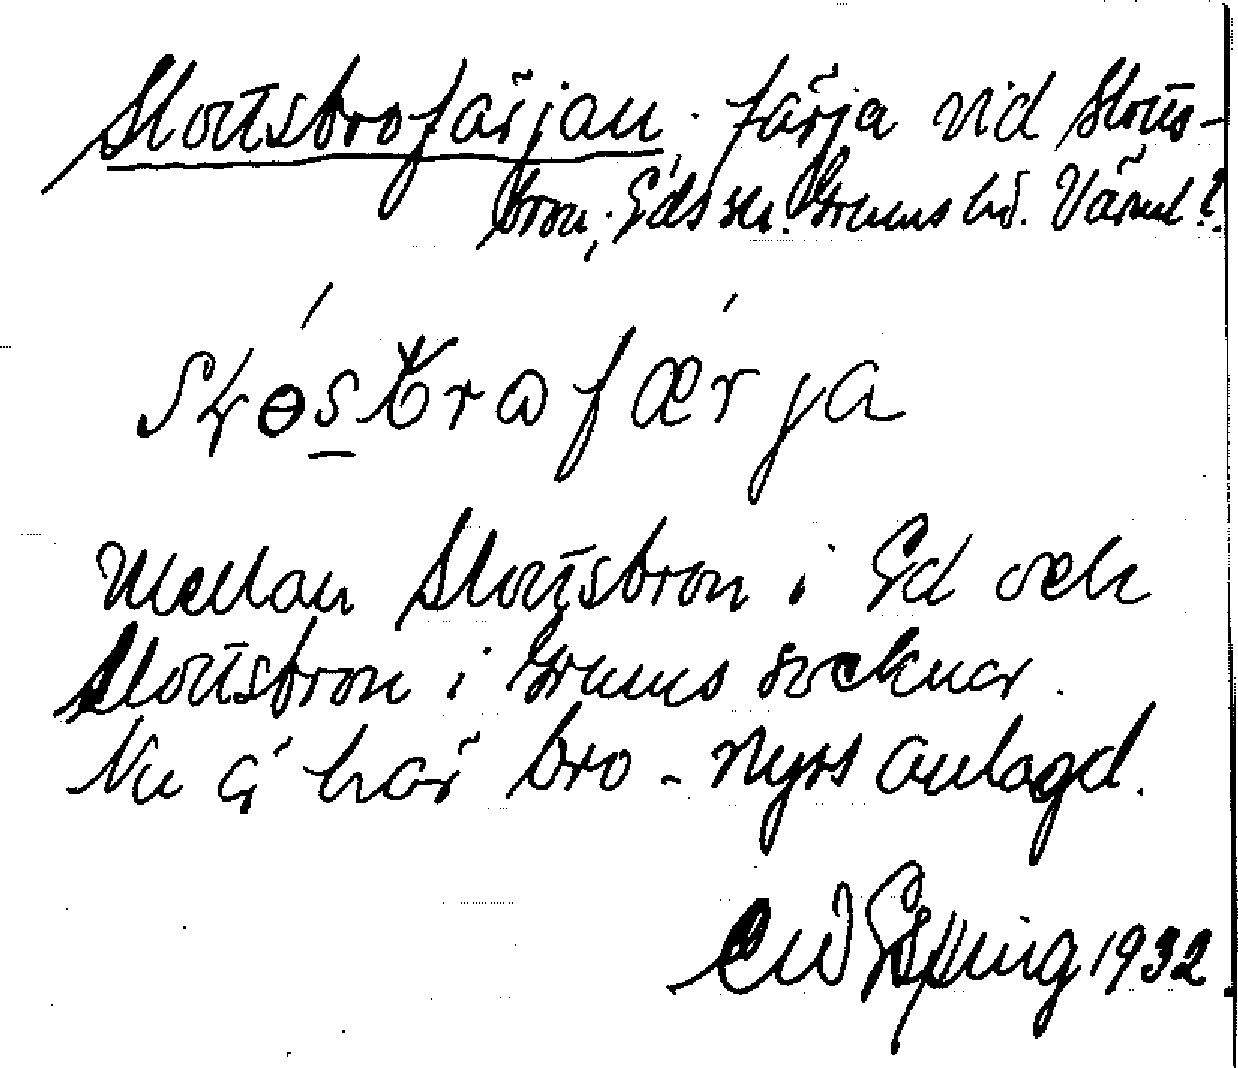 Slottsbrofärjan. färja vid Slotts-
bron, Eds sn. Grums hd. Värml.
Mellan Slottsbron i Ed och
Slottsbron i Grums socknar.
Nu är här bro - nyss anlagd.
Elfving 1932